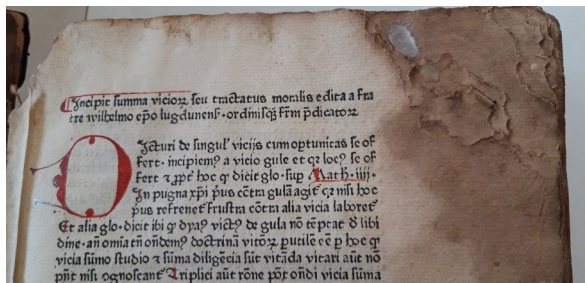 Incipit summa vicioꝝ seu tractatus moralis edita a fra
tre wilhelmo ep̄o lugdunensꝭ · ordinisqꝫ fr̄m p̄dicatoꝝ
Dicturi de singul' vicijs cum oportunitas se of
fert · incipiemꝰ a vicio gule et qꝛ locꝰ se of
fert ⁊ ꝓpt̄ hoc qď dicit glo · sup Math · iiii ·
In pugna xp̄i p̄us cōtra gulā agit̄ qꝛ nisi hoc
p̄us refrenet̄ frustra cōtra alia vicia laboret̄
Et alia glo · dicit ibi qď dyaꝰ victꝰ de gula nō tēptat d̄ libi
dine · añ omīa tn̄ ondemꝰ doctrinā vitoꝝ ꝑutilē eē ꝑ hoc qď
vicia sūmo studio ⁊ sūma diligēcia sūt vitāda vitari aūt nō
pn̄t nisi ꝯgnoscant̄ Triplici aūt rōne pōt ondi vicia sūma